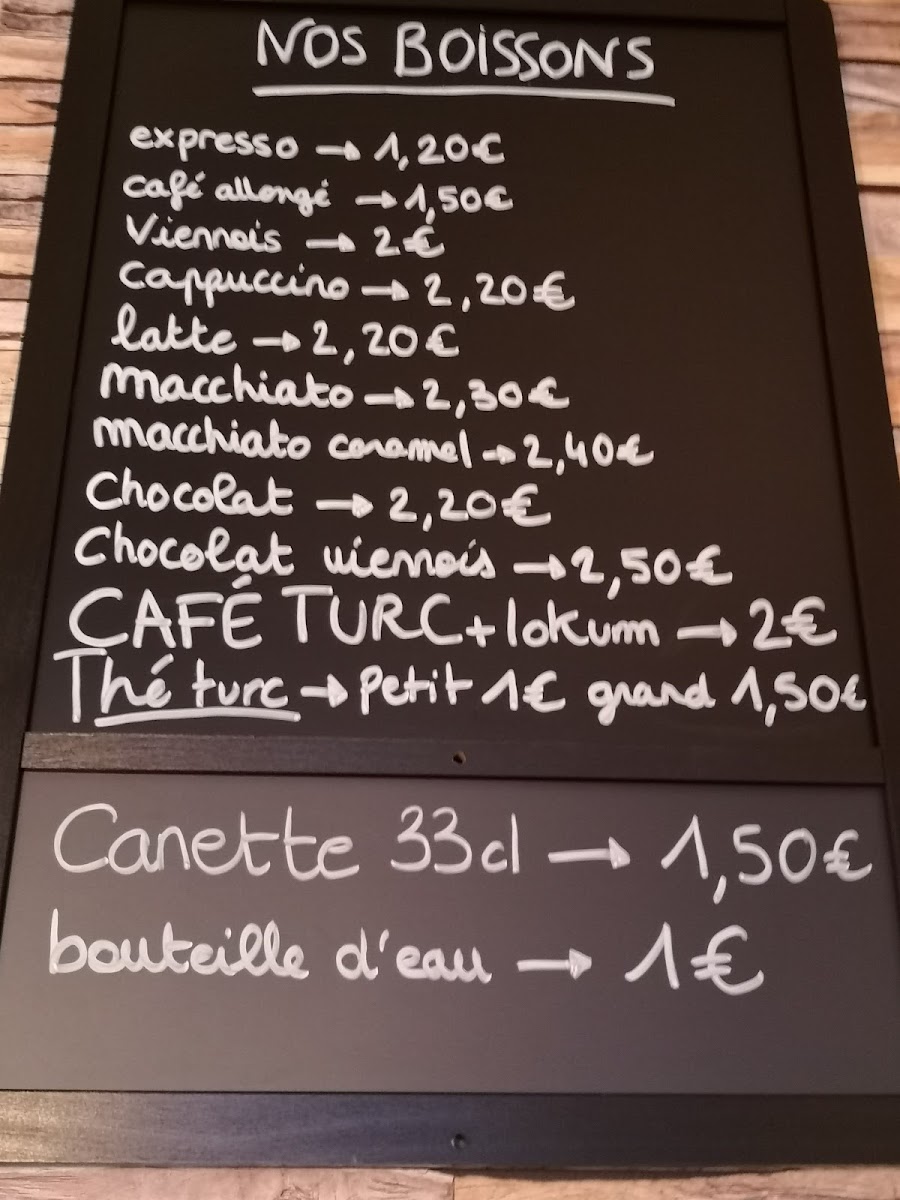 NOS BOISSONS
expresso → 1,20€
café allongé → 1,50€
Viennois → 2€
Cappuccino → 2,20€
latte → 2,20€
Macchiato → 2,30€
Macchiato caramel → 2,40€
Chocolat → 2,20€
Chocolat viennois → 2,50€
CAFÉ TURC + lokum → 2€
Thé turc → Petit 1€ grand 1,50€
Canette 33cl → 1,50€
bouteille d'eau → 1€